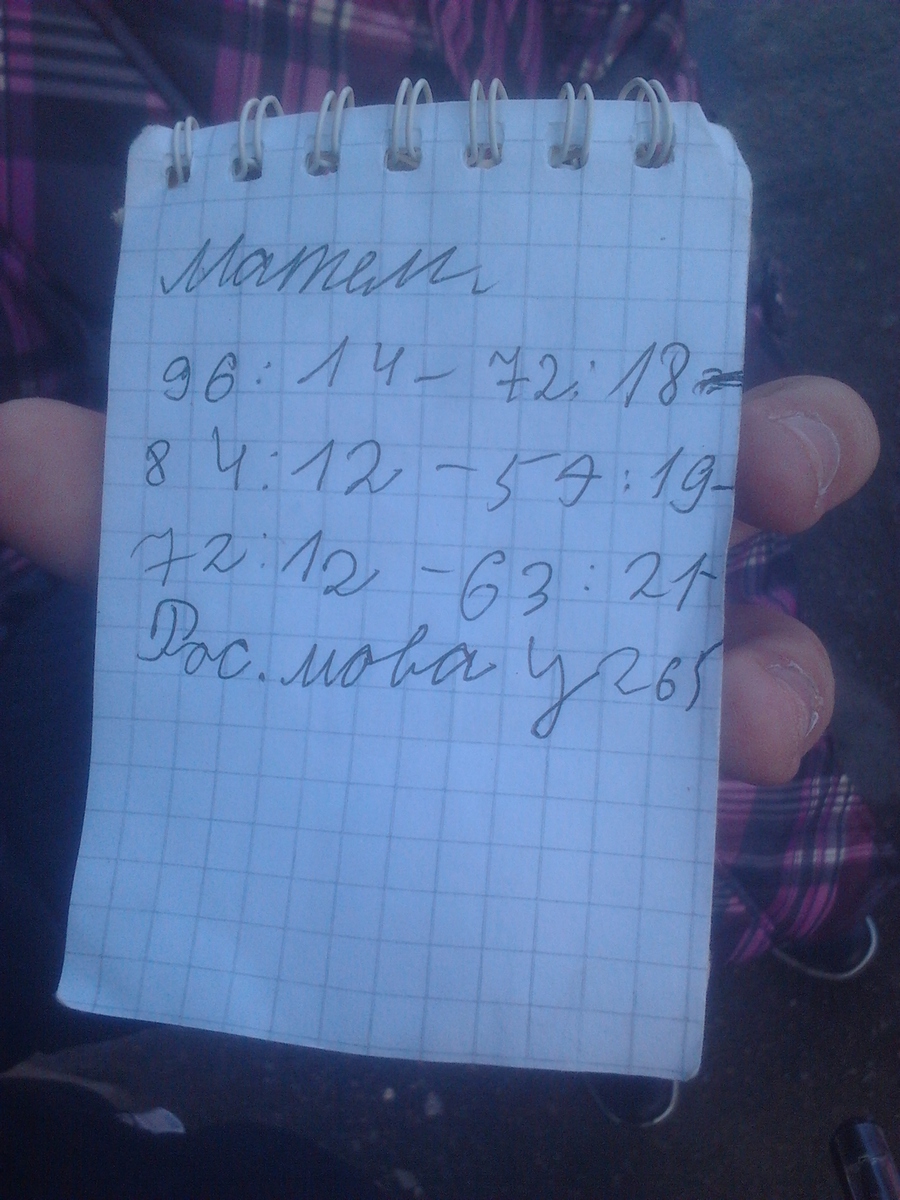 Матем.
96: 14- 72: 18=
84:12 -57:19-
72:12 -63:21-
Рос. мова у 265